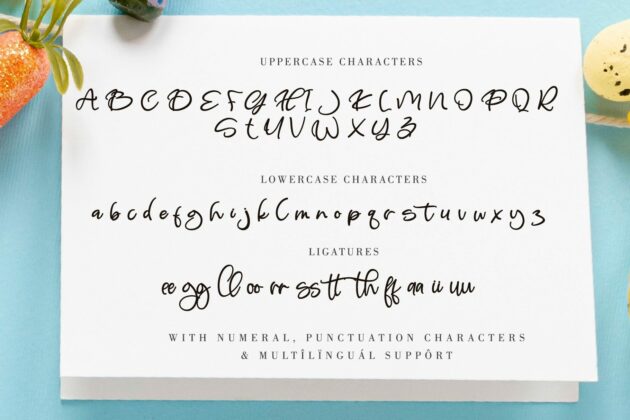 UPPERCASE CHARACTERS
A B C D E F G H I J K L M N O P Q R
S T U V W X Y Z
LOWERCASE CHARACTERS
a b c d e f g h i j k l m n o p q r s t u v w x y z
LIGATURES
ee gg ll oo rr ss tt th ff aa ii uu
WITH NUMERAL, PUNCTUATION CHARACTERS
& MULTÎLÏNGUÁL SUPPÔRT